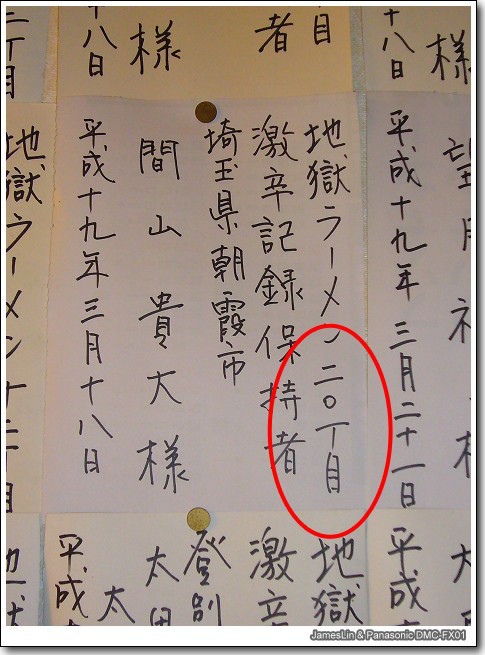 様
十八日
目
者
様
十八日
丁目
望月
様
平成十九年三月二十一日
地獄ラーメン二〇丁目
激辛記録保持者
埼玉県朝霞市
間山貴大様
平成十九年三月十八日
地獄ラーメン十二丁目
大
平成
地獄
激辛
登別
太田
太
平成
JamesLin & Panasonic DMC-FX01